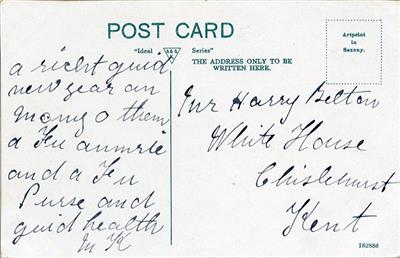 POST CARD
"Ideal Series"
THE ADDRESS ONLY TO BE
WRITTEN HERE.
Artprint
in
Saxony.
a richt guid
new year an
mony o them
a Fu aumrie
and a Fu
Purse and
guid health
M K
Mr Harry Belton
White House
Chislehurst
Kent
182888